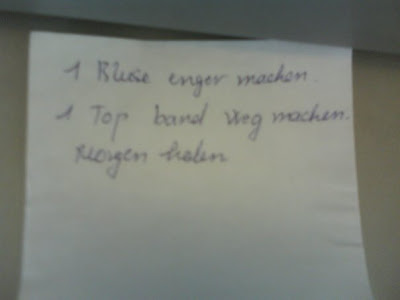 1 Bluse enger machen.
1 Top band weg machen.
Morgen holen